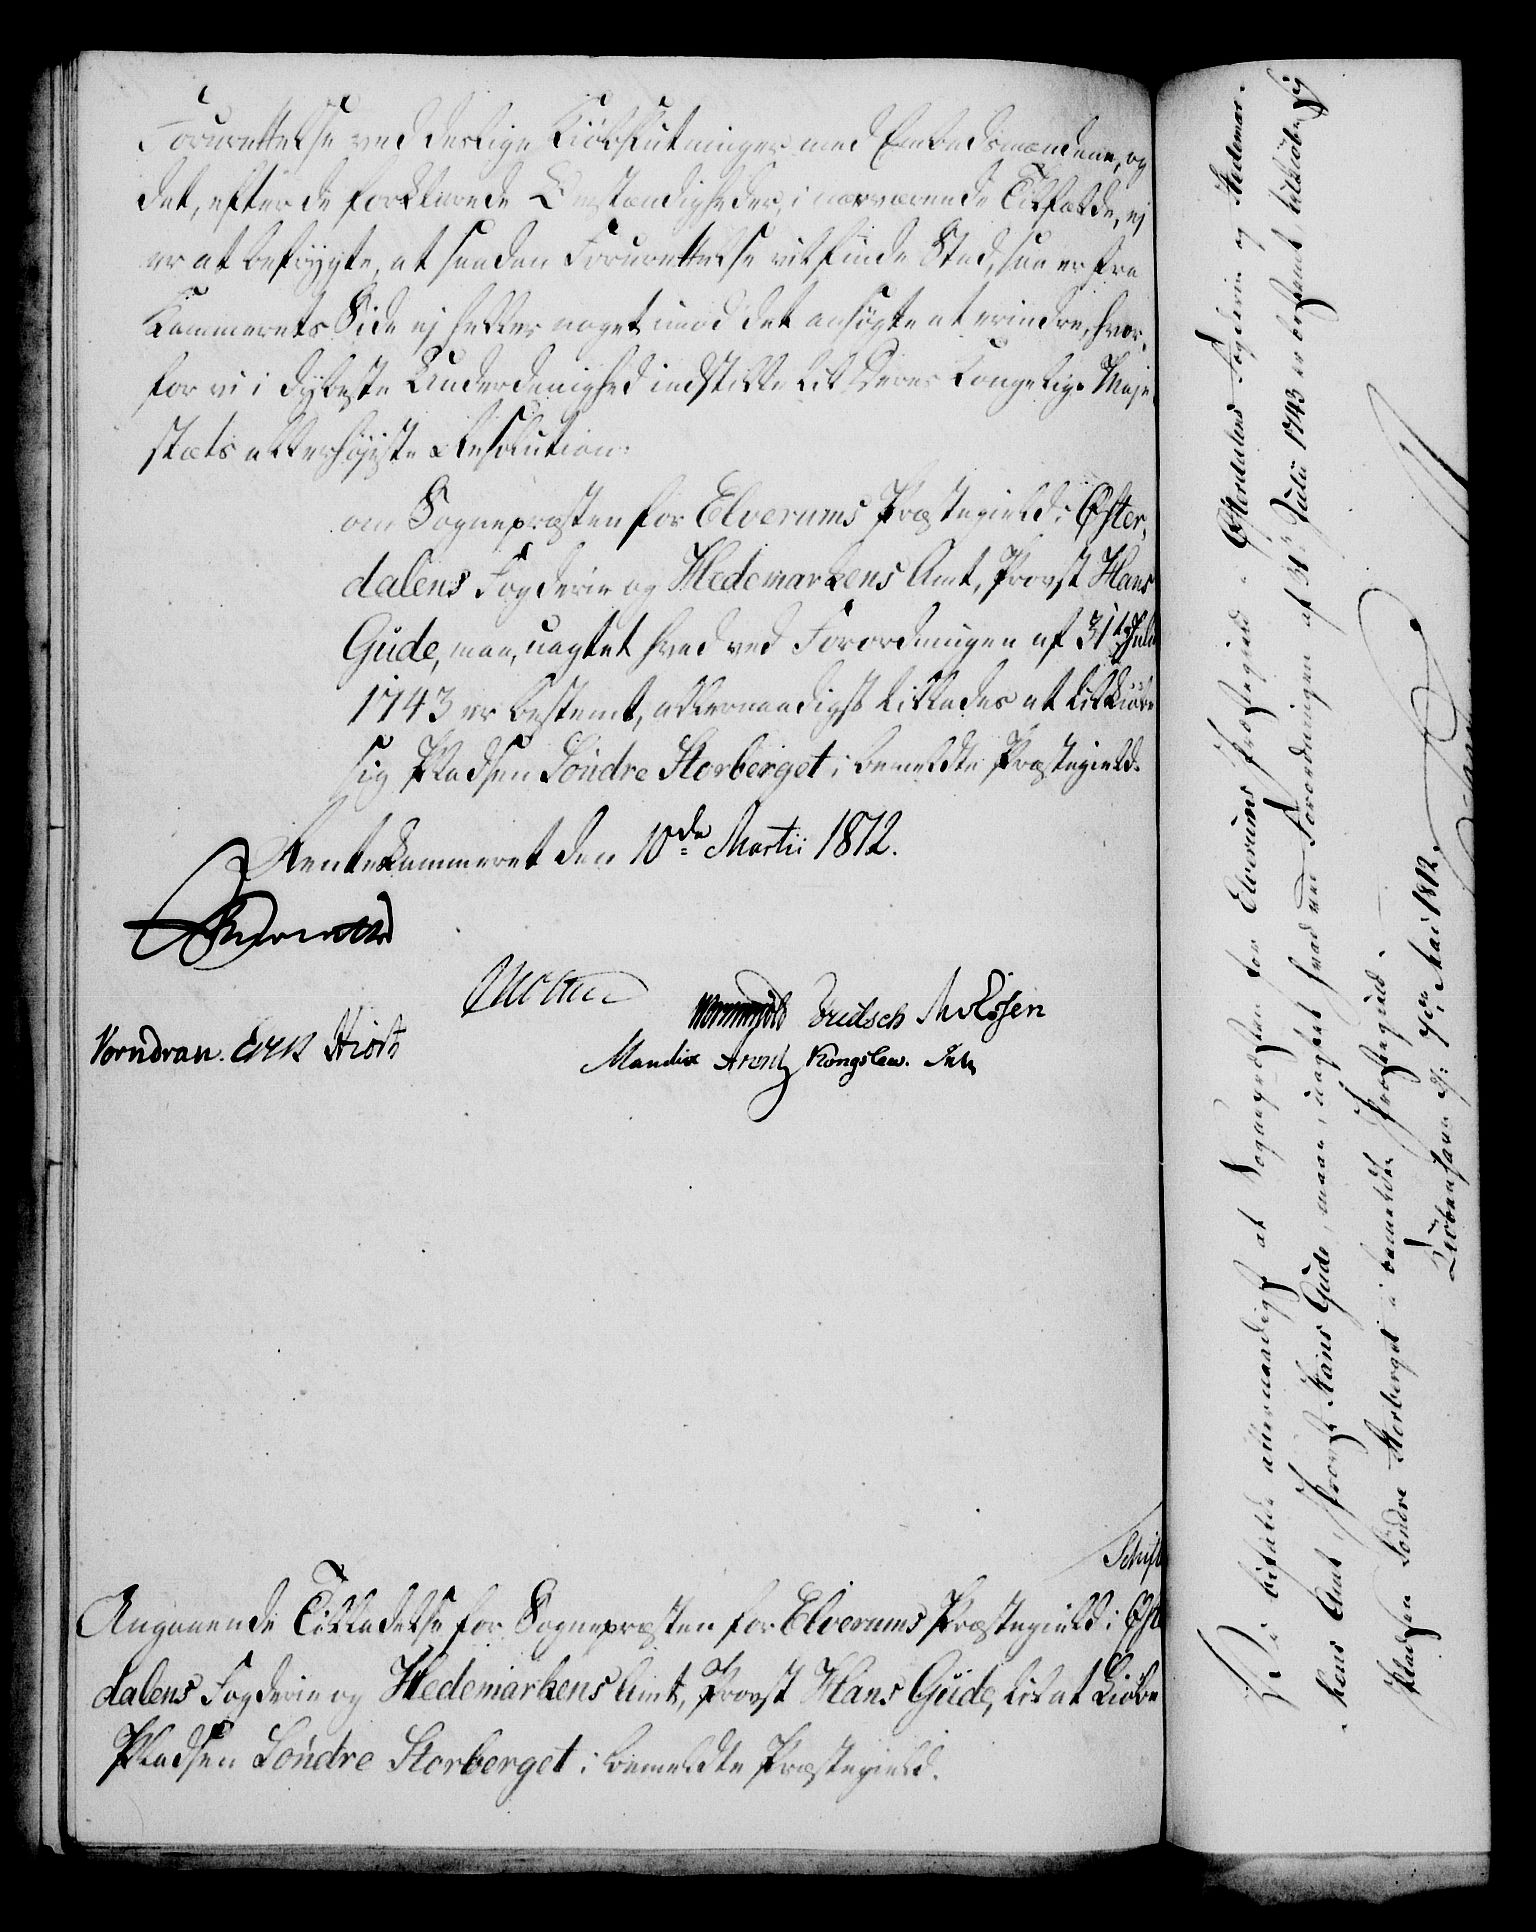 Forurettelse ved deslige Kiøbslutninger med Embedsmændene, og
det, efter de forklarede Omstændigheder, i nærværende Tilfælde, ej
er at befrygte, at saadan Forurettelse vil finde Sted, saa er fra
Kammerets Side ej heller noget imod det ansøgte at erindre, hvor-
for vi i dybeste Underdanighed indstille til Deres Kongelige Maje-
stæts allerhøjeste Resolution:
om Sognepræsten for Elverums Præstegield i Øster-
dalens Fogderie og Hedemarkens Amt, Provst Hans
Gude, maa, uagtet hvad ved Forordningen af 31te Julii
1743 er bestemt, allernaadigst tillades at tilkiøbe
sig Pladsen Søndre Storberget i bemeldte Præstegield.
Rentekammeret den 10de Martii 1812.
Wormskiold Fridsch
Vorndran. Hiort
Mandix Arentz Kongslew.
Schift
Angaaende Tilladelse for Sognepræsten for Elverums Præstegield i Øst
dalens Fogderie og Hedemarkens Amt, Provst Hans Gude, til at kiøbe
Pladsen Søndre Storberget i bemeldte Præstegield.
Vi bifalde allernaadigst at Sognepræsten for Elverums Præstegield i Østerdalens Fogderie og Hedemar-
kens Amt, Provst Hans Gude, maae, uagtet hvad ved Forordningen af 31te Julii 1743 er bestemt, tilkiøbe sig
Pladsen Søndre Storberget i bemeldte Præstegield.
Kiøbenhavn d: 7de Mai 1812.